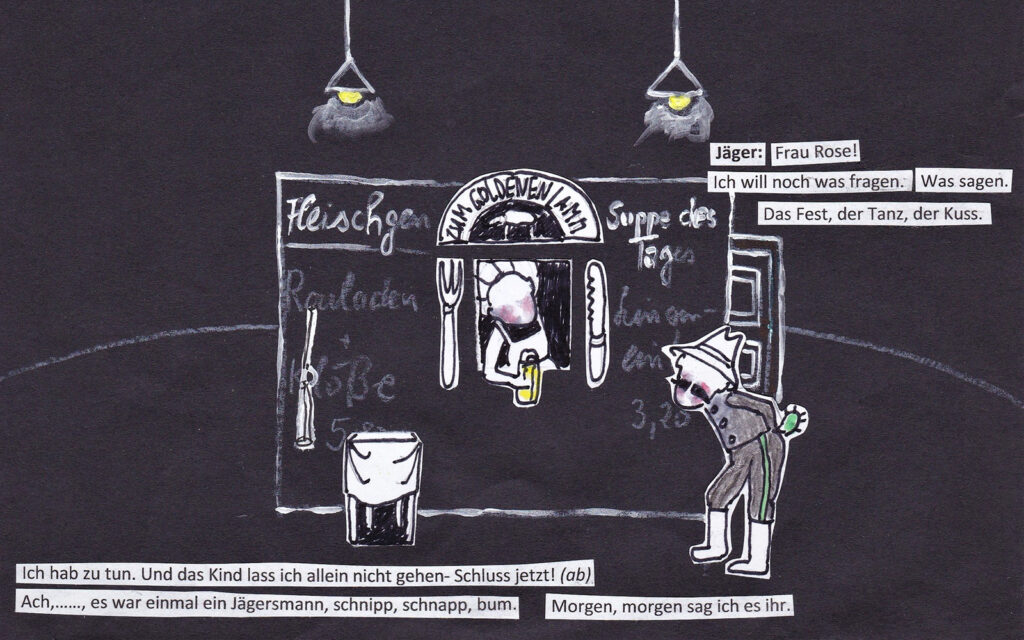 Jäger: Frau Rose!
Ich will noch was fragen. Was sagen.
Das Fest, der Tanz, der Kuss.
ZUM GOLDENEN LAMM
Fleischgen
Rouladen
+
Klöße
Suppe des
Tages
Linsen-
3,20
Ich hab zu tun. Und das Kind lass ich allein nicht gehen- Schluss jetzt! (ab)
Ach,......, es war einmal ein Jägersmann, schnipp, schnapp, bum.
Morgen, morgen sag ich es ihr.